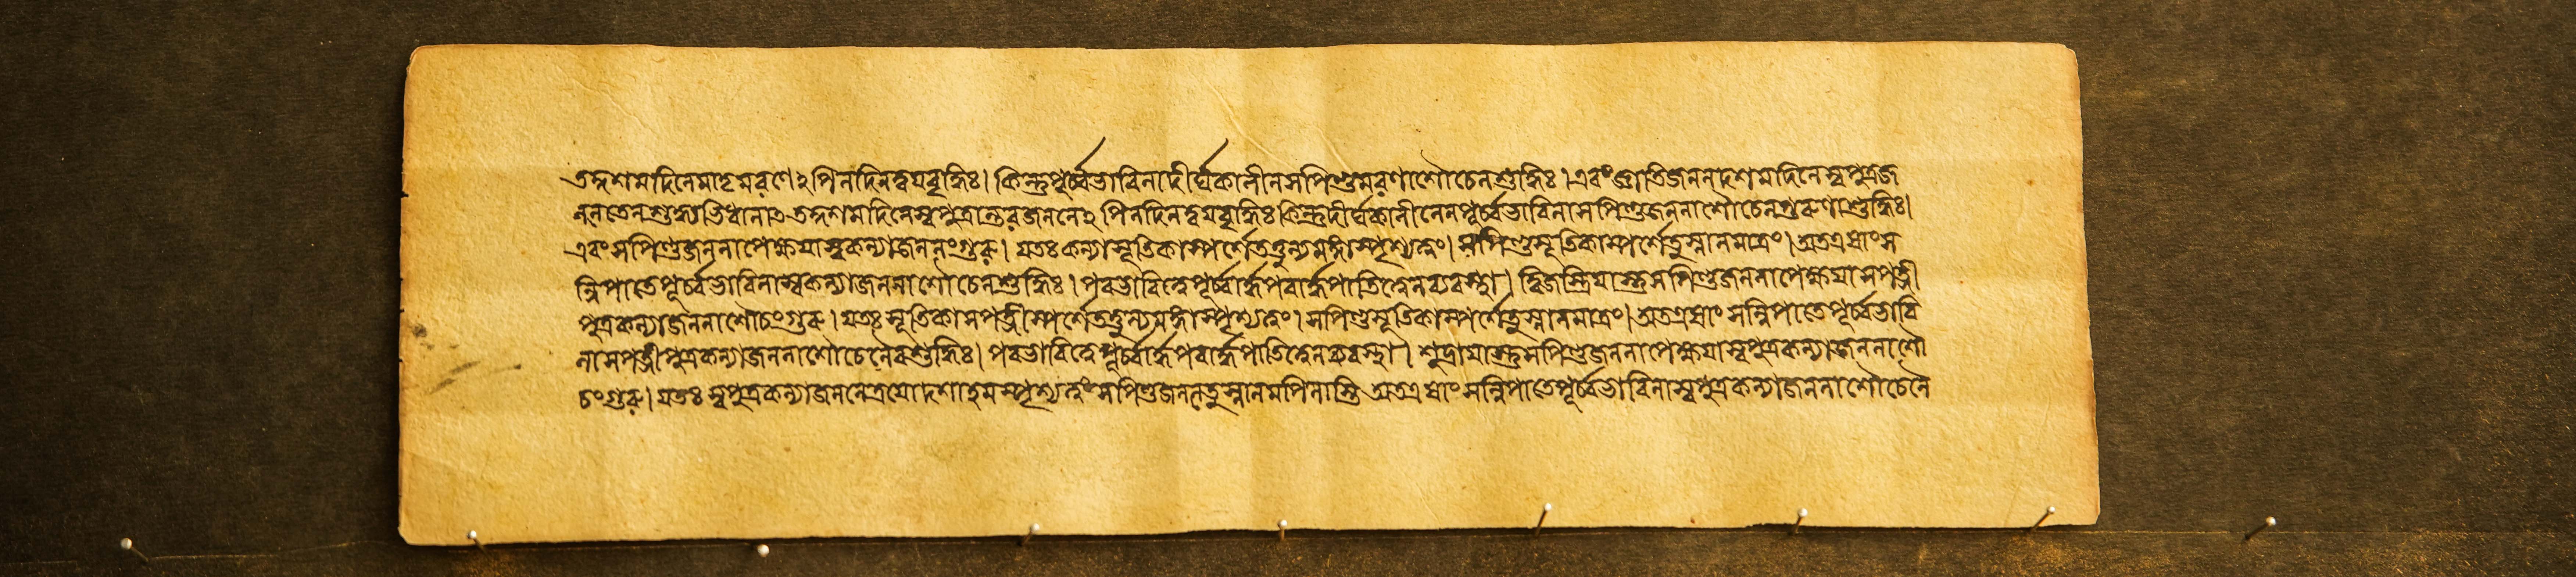 তদ্দশমদিনেমাতৃমরণেঽপিনদিনদ্বয়বৃদ্ধিঃ। কিন্তুপূর্ব্বভাবিনাদীর্ঘকালীনসপিণ্ডমরণাশৌচেনশুদ্ধিঃ। এবংজ্ঞাতিজননদশমদিনেস্বপুত্রজ
ননতেনশুদ্ধ্যভিধানাত্র তদ্দশমদিনেস্বপুত্রান্তরজননেঽপিনদিনদ্বয়বৃদ্ধিঃ কিন্তুদীর্ঘকালীনেনপূর্ব্বভাবিনাসপিণ্ডজননাশৌচেনগুরুণাশুদ্ধিঃ।
এবংসপিণ্ডজননাপেক্ষয়াস্বকন্যাজননংগুরু। যতঃকন্যাসূতিকাস্পর্শেতত্তুল্যমঙ্গাস্পৃশ্যত্বং। সপিণ্ডসূতিকাস্পর্শেতুস্নানমাত্রং। অতএষাংস
ন্নিপাতেপূর্ব্বভাবিনাস্বকন্যাজননাশৌচেনশুদ্ধিঃ। পরভাবিত্বেপূর্ব্বার্দ্ধপরার্দ্ধপাতিত্বেনব্যবস্থা। দ্বিজস্ত্রিয়াস্তুসপিণ্ডজননাপেক্ষয়াসপত্নী
পুত্রকন্যাজননাশৌচংগুরু। যতঃ সূতিকাসপত্নীস্পর্শেতত্তুল্যমঙ্গাস্পৃশ্যত্বং। সপিণ্ডসূতিকাস্পর্শেতুস্নানমাত্রং। অতএষাং সন্নিপাতেপূর্ব্বভাবি
নাসপত্নীপুত্রকন্যাজননাশৌচেনৈবশুদ্ধিঃ। পরভাবিত্বেপূর্ব্বার্দ্ধপরার্দ্ধপাতিত্বেনব্যবস্থা। শূদ্রায়াস্তুসপিণ্ডজননাপেক্ষয়াস্বপুত্রকন্যাজননাশৌ
চংগুরু। যতঃ স্বপুত্রকন্যাজননেত্রয়োদশাহমস্পৃশ্যত্বং সপিণ্ডজননেতুস্নানমপিনাস্তি অতএষাং সন্নিপাতেপূর্ব্বভাবিনাস্বপুত্রকন্যাজননাশৌচেনৈ